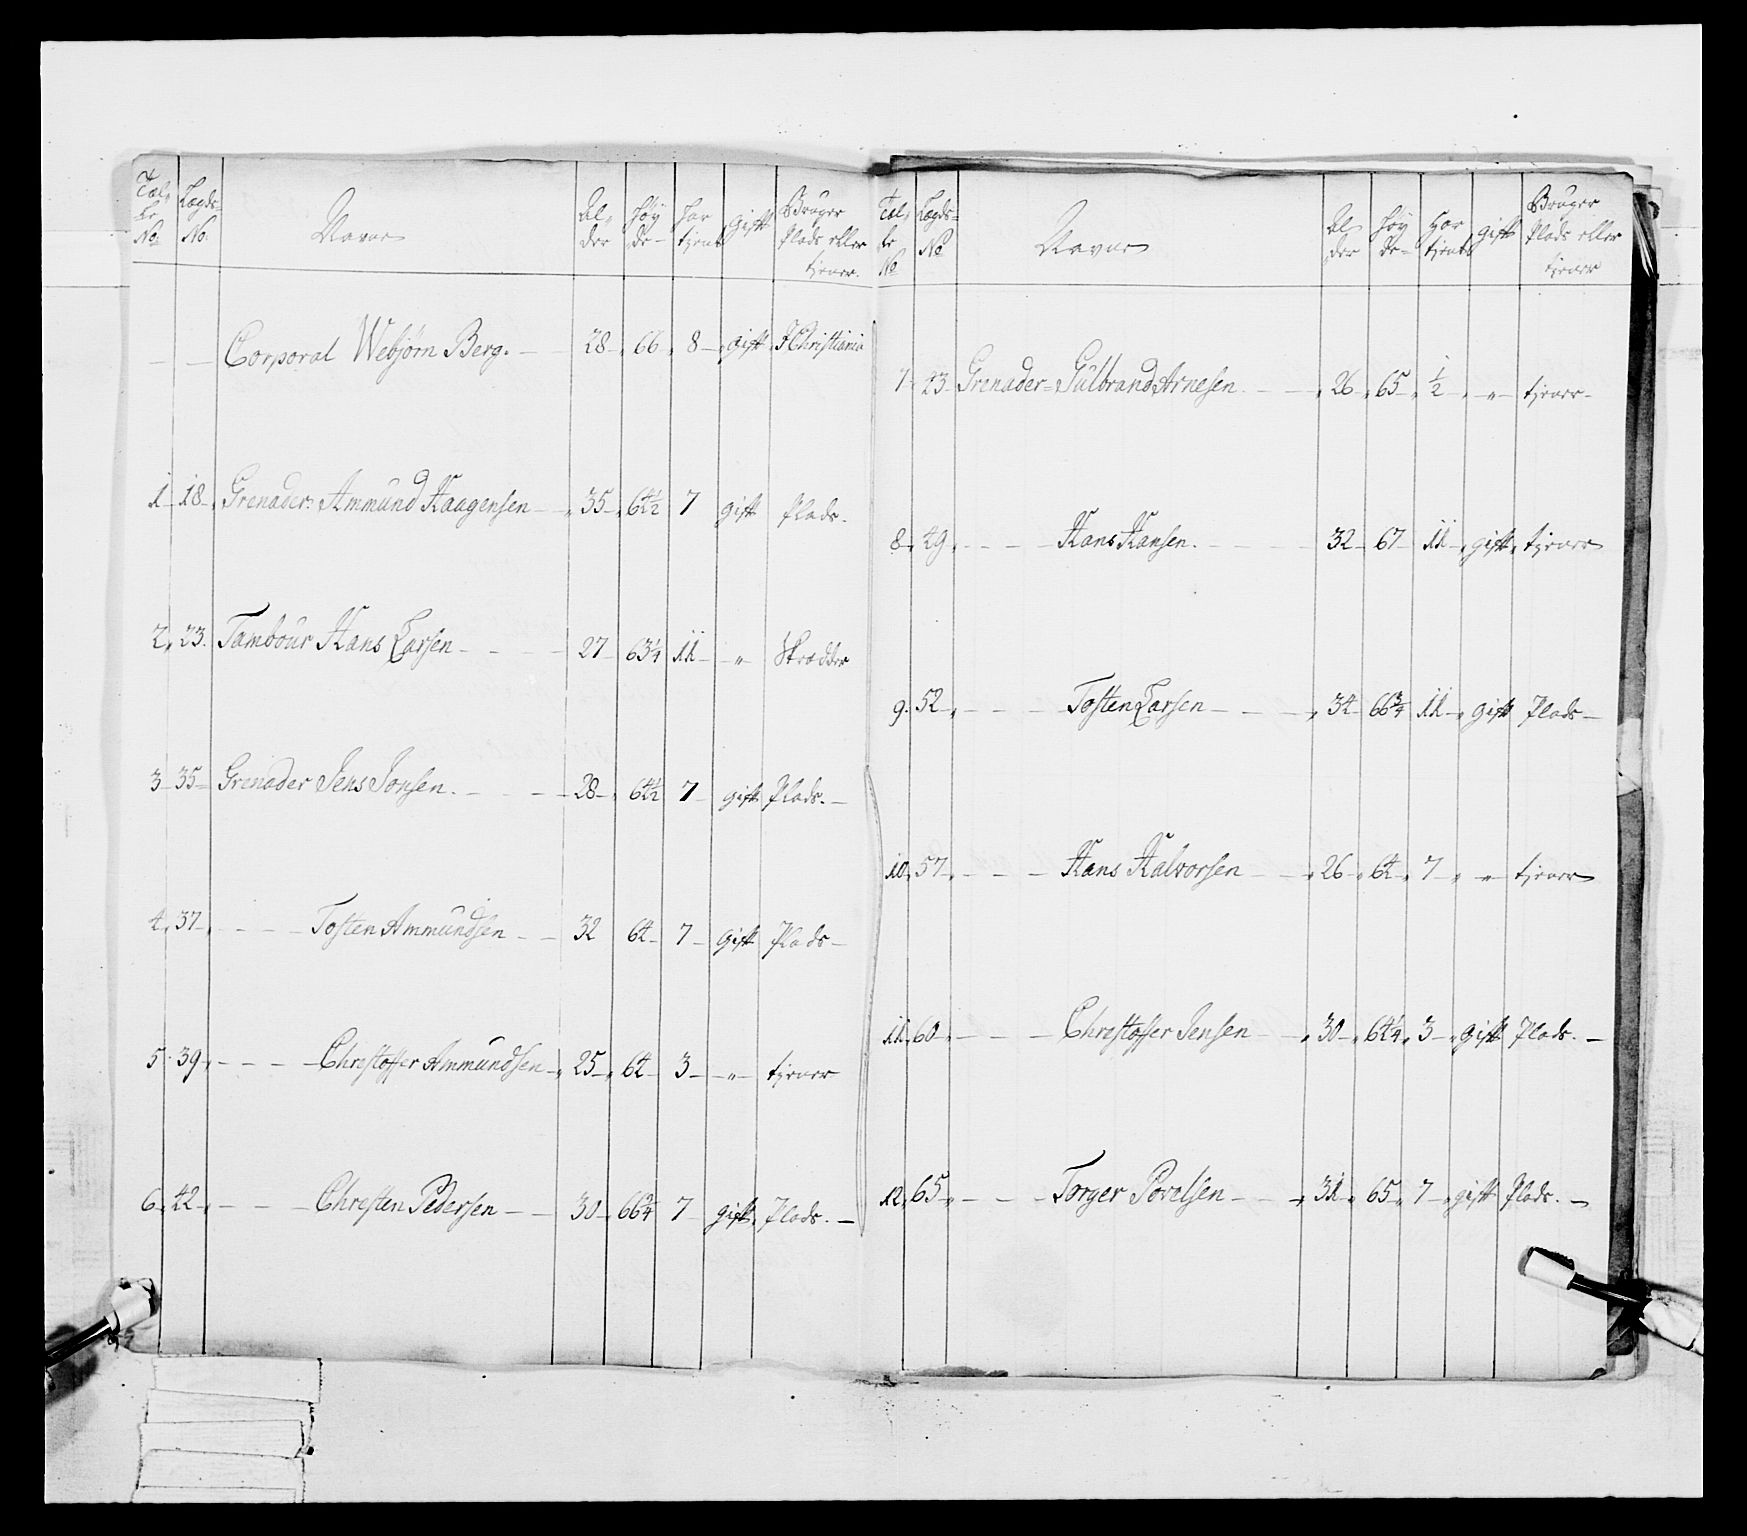 Tal-
le
No.
Lægds-
No.
Navne
Al-
der
Høy-
de-
har
tjent
gift
Bruger
Plads eller
tjener.
— — Corporal Webjørn Berg. — 28 66 8 gift I Christiania
1 18 Grenader: Ammund Haagensen — 35 64½ 7 gift Plads.
2 23. Tambour Hans Larsen — 27 63¼ 11 „ Skrædder
3 35 Grenader Jens Jonsen. — 28 64½ 7 gift Plads. —
4 37 — — — Tosten Ammundsen — 32 64 7 gift Plads —
5 39 — — — Christoffer Ammundsen 25 64 3 „ tjener
6 42 — — — Christen Pedersen — 30 66¾ 7 gift Plads. —
Tal-
le
No
Lægds-
No
Navne
Al-
der
Høy-
de-
Har
tjent
gift
Bruger
Plads eller
tjener
7 43 Grenader= Gulbrand Arnesen. — 26 65 ½ „ tjener
8 49 — — — Hans Hansen. — 32 67 11 gift tjener
9. 52 — — — Tosten Larsen — 34 66¾ 11 gift Plads —
10 57 — — — Hans Halvorsen — 26 64 7 „ tjener
11 60 — — — Christoffer Jensen — 30 64¼ 3 gift Plads. —
12 65 — — — Torger Povelsen — 31 65 7 gift Plads. —